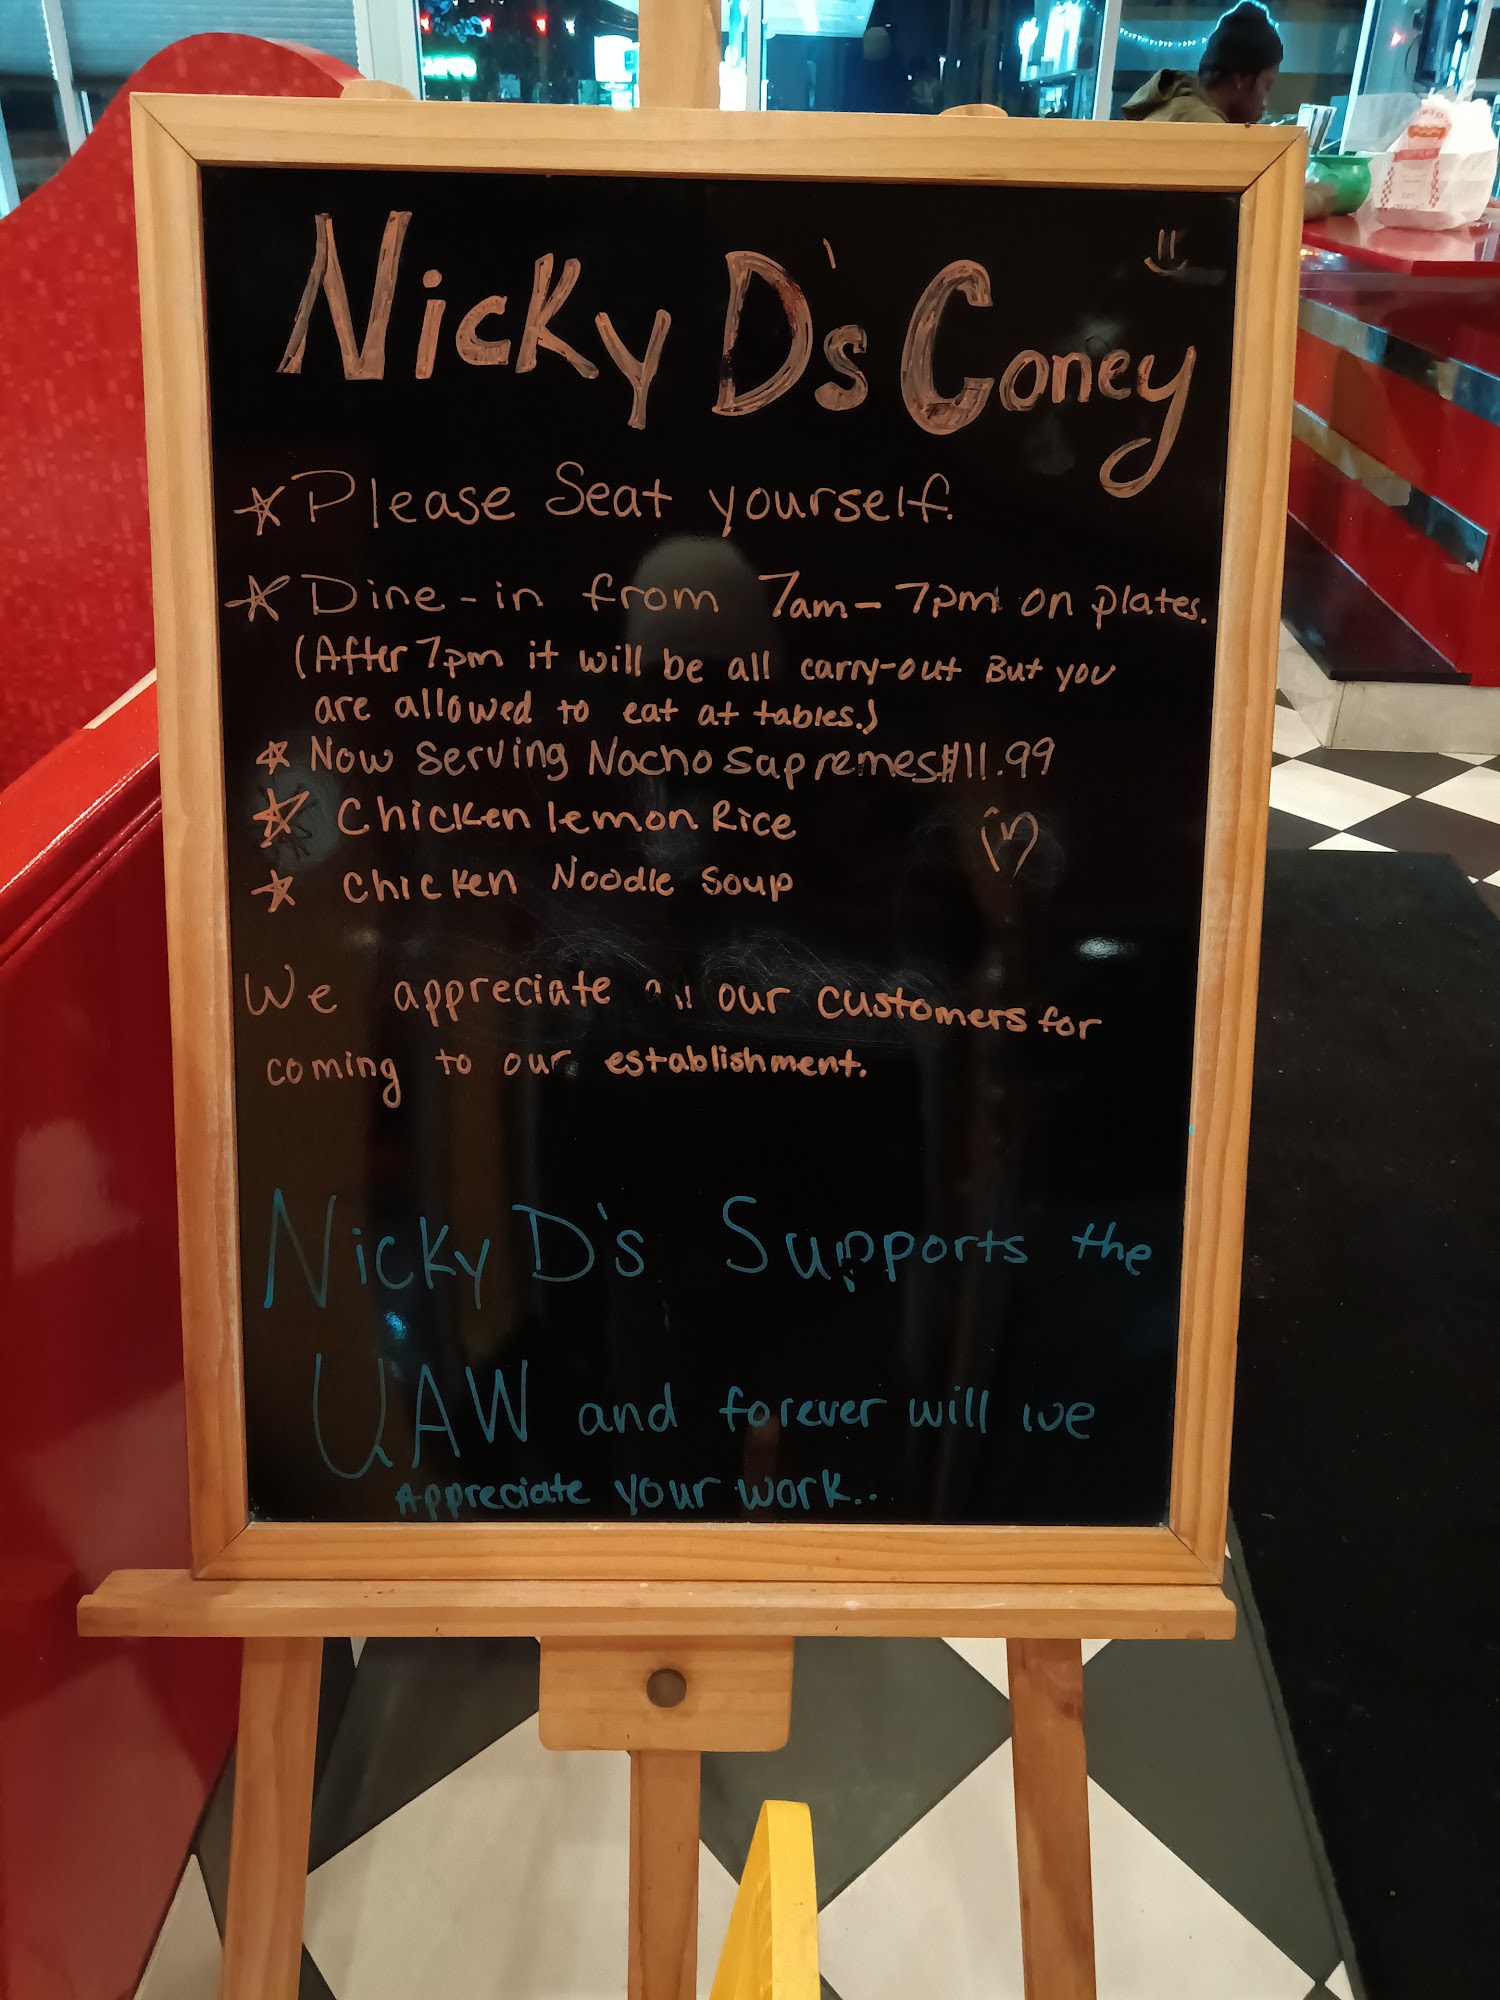 Nicky D's Coney
Please Seat yourself.
Dine-in from 7am-7pm on plates.
(After 7pm it will be all carry-out But you
are allowed to eat at tables.)
Now serving Nacho Supremes $11.99
Chicken lemon Rice
Chicken Noodle Soup
We appreciate all our customers for
coming to our establishment.
Nicky D's Supports the
UAW and forever will we
Appreciate your work..